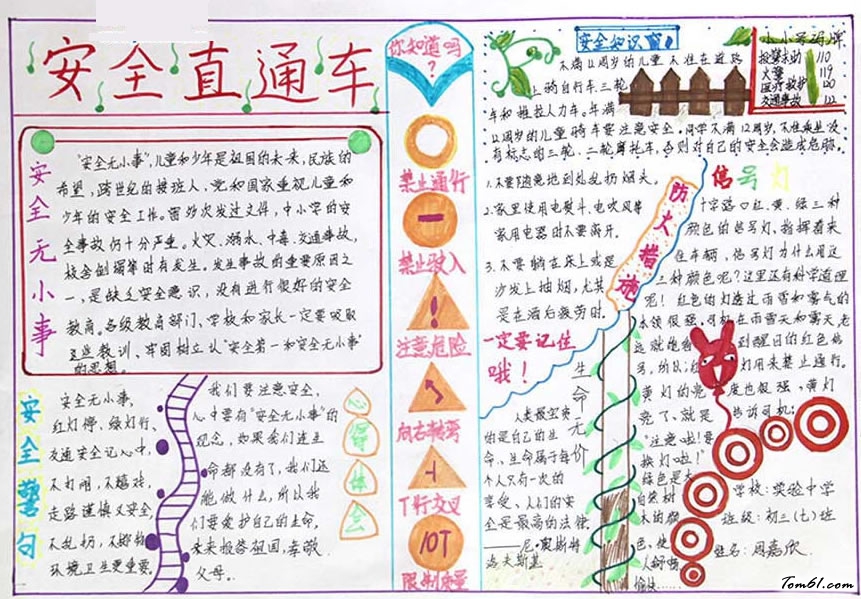 安全直通车
安全无小事
"安全无小事",儿童和少年是祖国的未来,民族的
希望,跨世纪的接班人,党和国家重视儿童和
少年的安全工作。曾多次发过文件,中小学的安
全事故仍十分严重。火灾、溺水、中毒、交通事故,
校舍倒塌等时有发生。发生事故的重要原因之
一,是缺乏安全意识,没有进行很好的安全
教育。各级教育部门、学校和家长一定要吸取
这些教训、牢固树立从"安全第一和安全无小事"
的思想。
安全警句
安全无小事,
红灯停、绿灯行、
交通安全记心中,
不打闹,不嬉戏,
走路谨慎又安全,
不乱扔,不
环境卫生更重要。
我们要注意安全,
心中要有"安全无小事"的
观念,如果我们连生
命都没有了,我们还
能做什么,所以我
们要爱护自己的生命,
未来报答祖国,孝敬
父母。
心
得
体
会
你知道吗
?
禁止通行
禁止驶入
注意危险
向右转弯
T行交叉
10T
限制质量
安全知识窗
不满12周岁的儿童不准在道路
上骑自行车三轮
车和推拉人力车。年满
12周岁的儿童骑车要注意安全。同学不满12周岁,不准乘坐没
有标志的三轮、二轮摩托车,否则对自己的安全会造成危胁。
小小号码牌
报警求助 110
火警 119
医疗救护 120
交通事故 122
防火措施
1.不要随意地到处乱扔烟头。
2.家里使用电熨斗、电吹风等
家用电器时不要离开。
3.不要躺在床上或是
沙发上抽烟,尤其
是在酒后疲劳时.
一定要记住
哦!
生命无价
人类最宝贵
的是自己的生
命、生命属于每
个人只有一次的
享受、人们的安
全是最高的法律
——尼·奥斯特
洛夫斯基
信号灯
十字路口红、黄、绿三种
颜色的信号灯、指挥着来
往车辆,信号灯为什么用这
三种颜色呢?这里还有科学道理
呢!红色的灯透过雨雪和雾气的
本领很强,司机在雨雪天和雾天,老
远就能看到醒目的红色信
号,所以,红灯用来禁止通行。
黄灯的亮度也很强,黄灯
亮了、就是告诉司机:
"注意啦!要
换灯啦!"
绿色是大
自然树
木的颜
色,使
人舒畅
愉快……
学校:实验中学
班级:初三(七)班
姓名:周嘉欣
Tom61.com